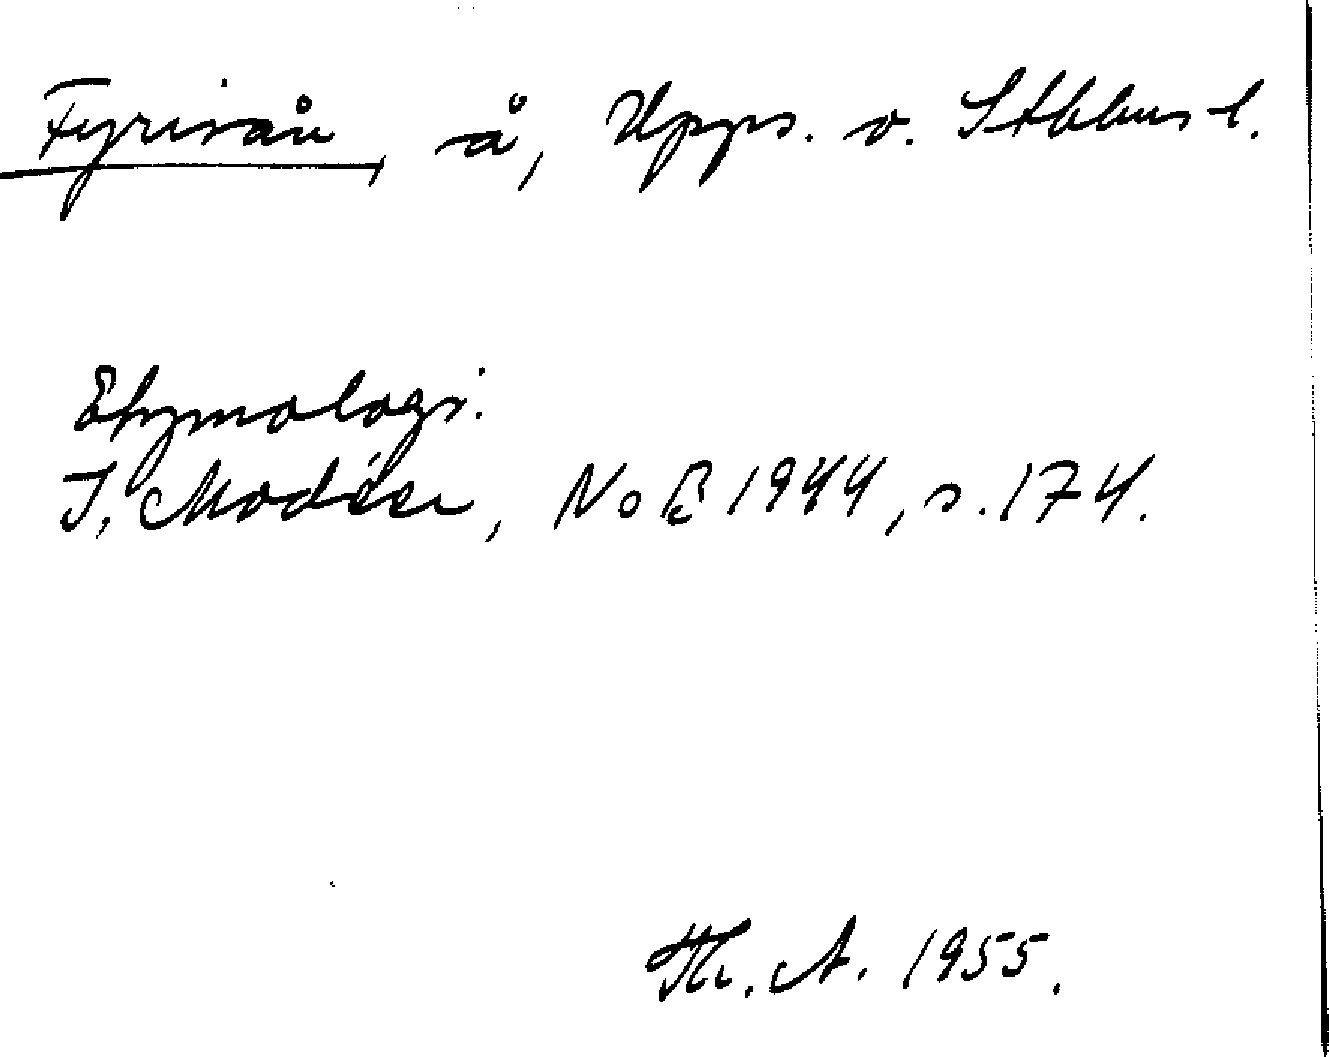 Fyrisån, å, Upps. o. Sthlms l.
Etymologi.
I. Modéer, NoB 1944, s. 174.
Th. A. 1955.